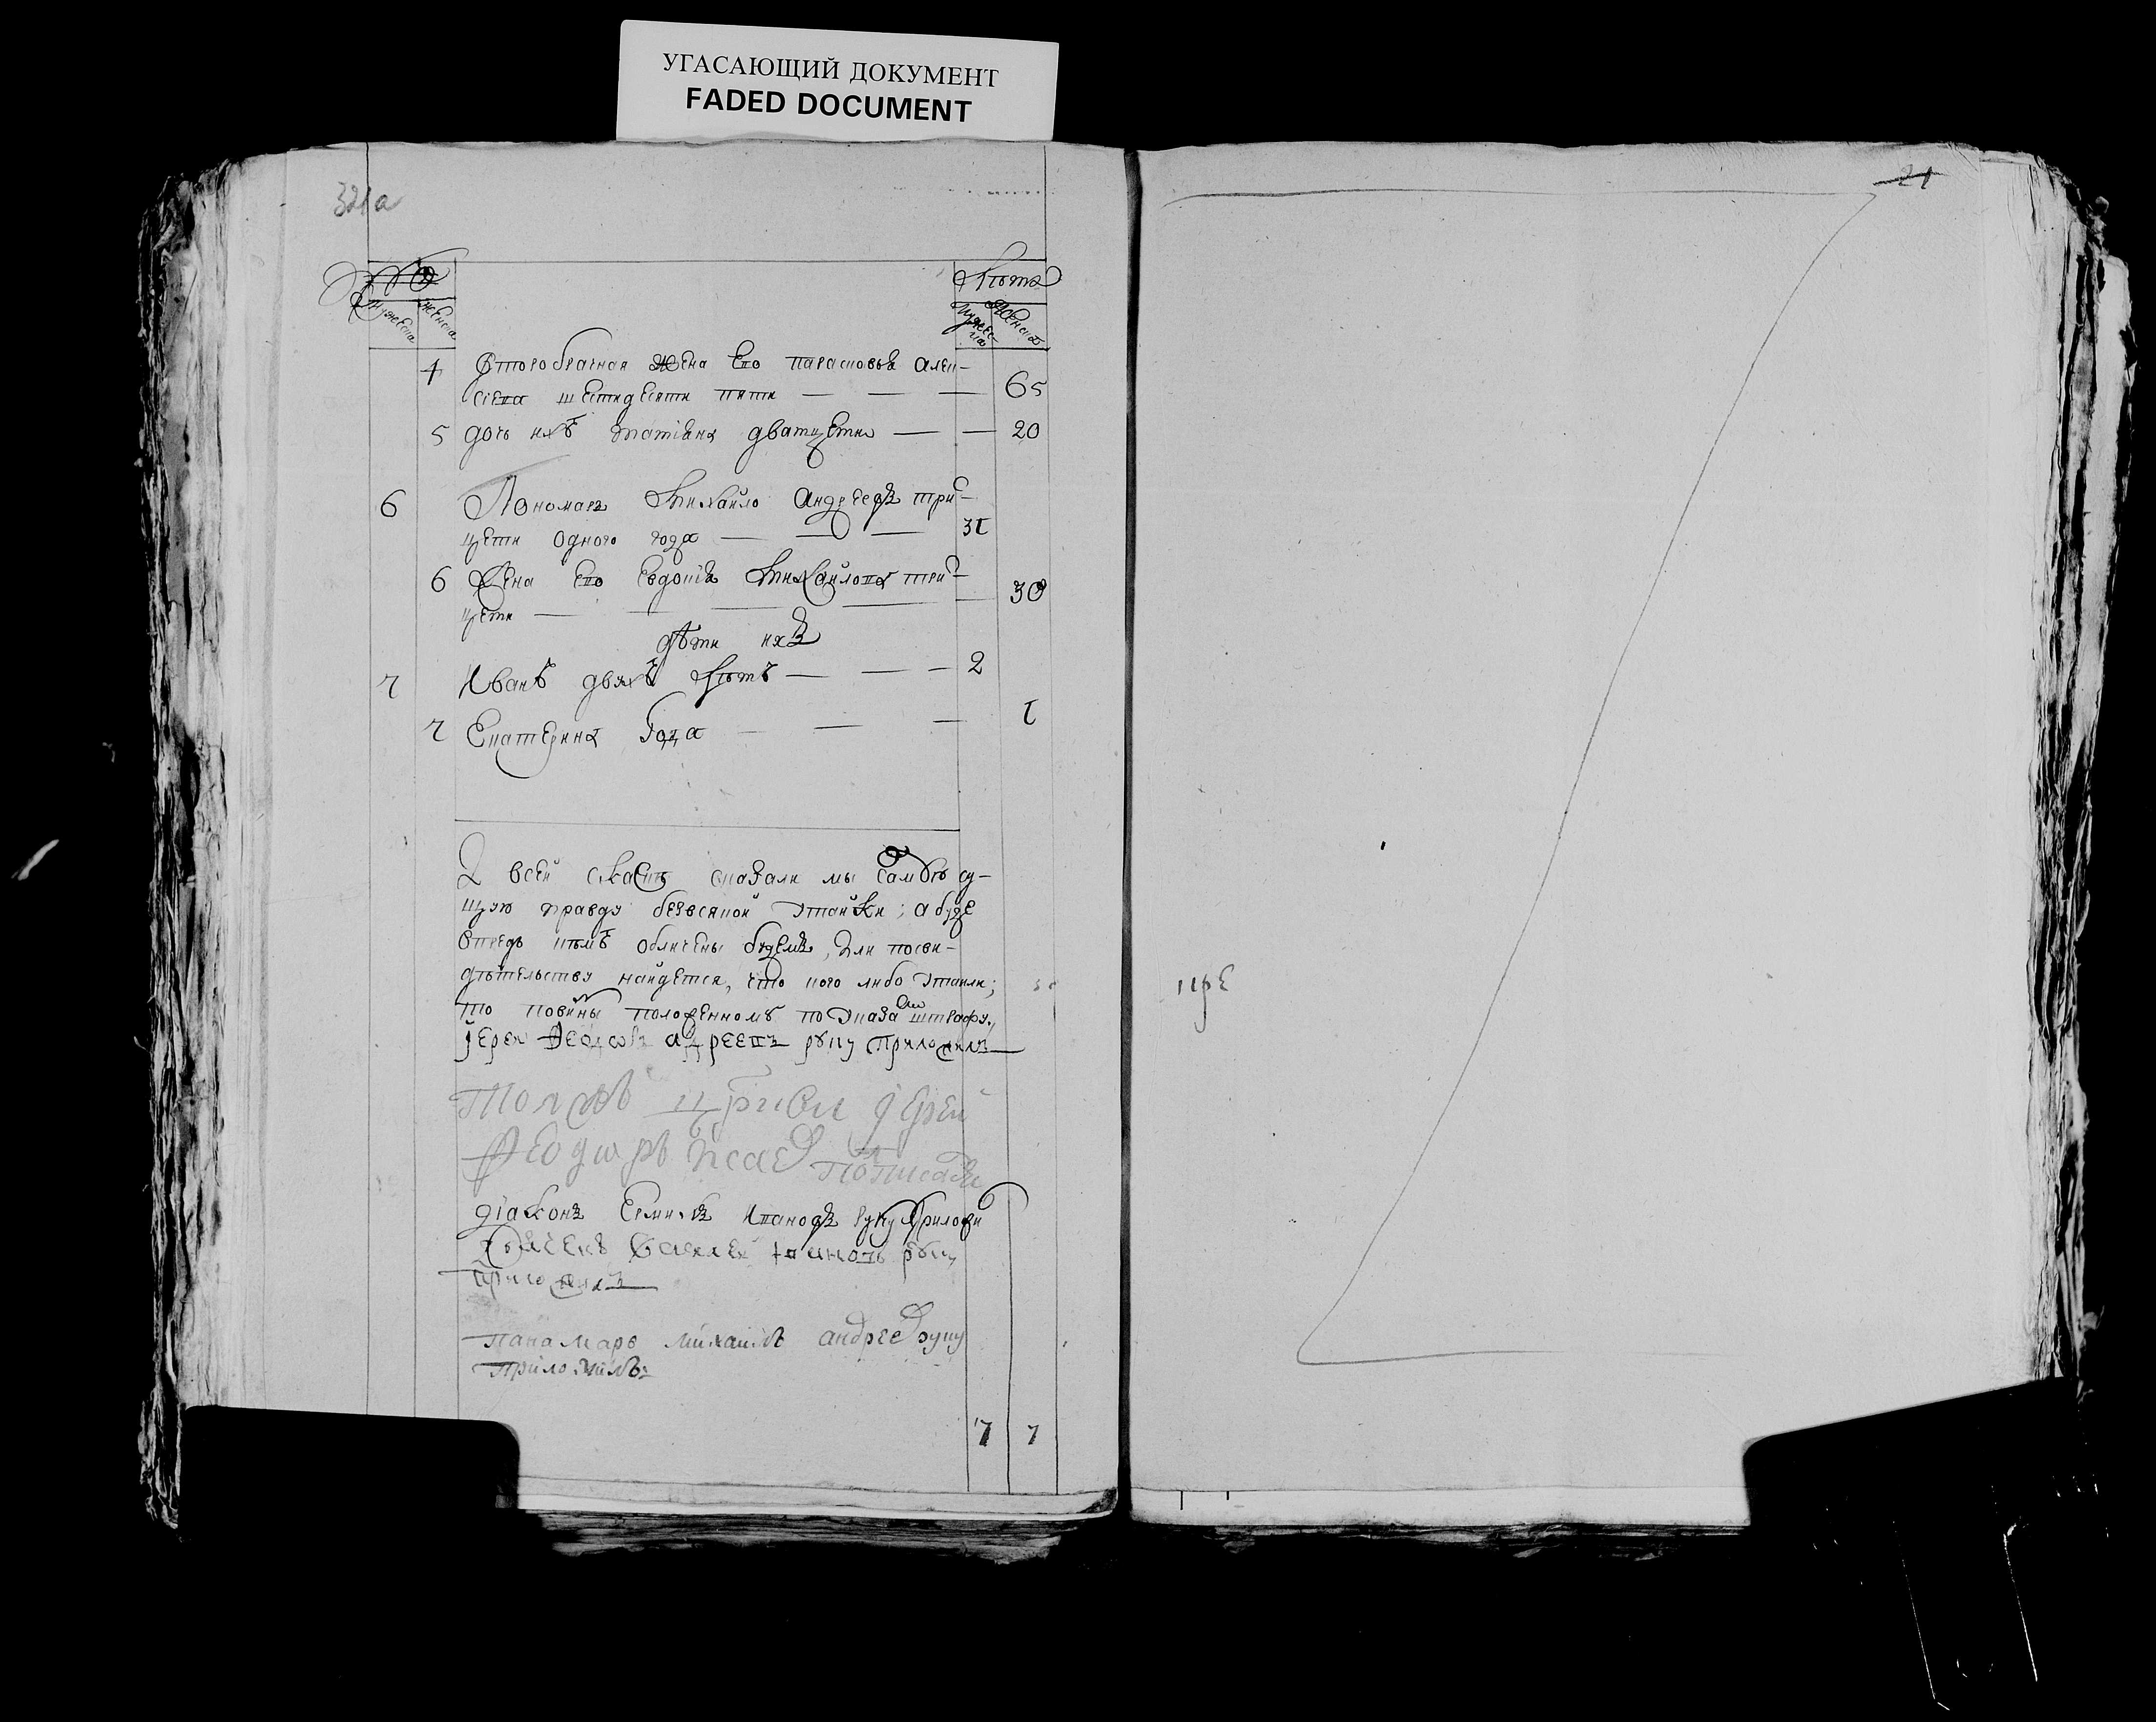 УГАСАЮЩИЙ ДОКУМЕНТ
FADED DOCUMENT
321а
21
№
Лѣта
мужеска женска
мужеска женска
4 Второбрачная жена ево парасковья алек-
сѣева шестидесяти пяти — — — 65
5 дочь ихъ татіана дватцети — — 20
6 Пономарь Михайло Андреевъ трит-
цети одного года — — — 31
6 Жена ево евдокіа Михайлова трит-
цети — — — — 30
дѣти ихъ
7 Иванъ двухъ лѣтъ — — — 2
7 Екатерина года — — — 1
в сей скаске сказали мы самую су-
щую правду безвсякой утайки; а буде
впредь кѣмъ обличены будемъ, или посви-
дѣтельству найдется, что кого либо утаили;
то повинны положенному по указам штрафу.,
іереи Феодоръ андреевъ руку приложилъ
тояжъ церкви іерей
Феодоръ подписался
діаконъ Ивановъ руку приложи
руку
приложилъ
панамарь михаилъ андреевъ руку
приложилъ
7 7